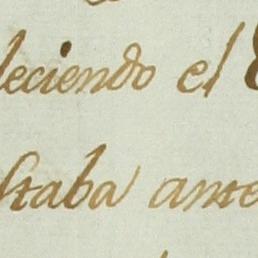 leciendo el
staba ante